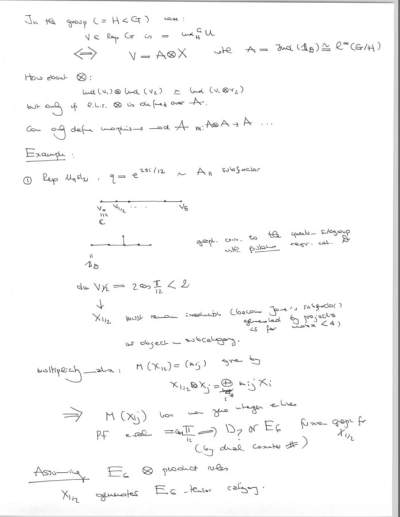 In the group (= H < G) case:
V ∈ Rep G is = ind_H^G U
⟺ V = A⊗X with A = Ind(1_B) ≅ l^∞(G/H)
How about ⊗:
Ind(V₁)⊗Ind(V₂) ⊂ Ind(V₁⊗V₂)
but only if l.h.s. ⊗ is defined over A.
Can only define morphisms and A m: A⊗A → A ...
Example:
① Rep U_q sl_2, q = e^{2πi/12} ~ A_11 subfactor
V_0 V_{1/2} . . . V_5
1_B
graph corr. to the quantum subgroup
with
dim V_{1/2} = 2cos π/12 < 2
↓
X_{1/2} must remain irreducible (because Jones subfactor
generated by projects
is for index < 4)
as object in subcategory.
multiplicity matrix: M(X_{1/2}) = (m_ij) given by
X_{1/2}⊗X_j = ⊕_i m_ij X_i
⟹ M(X_{1/2}) has non neg integer entries
PF eval = 2cos π/12 ⟹ D_7 or E_6 fusion graph for X_{1/2}
(by dual Coxeter #)
Assuming E_6 ⊗ product rules
X_{1/2} generates E_6 tensor category.